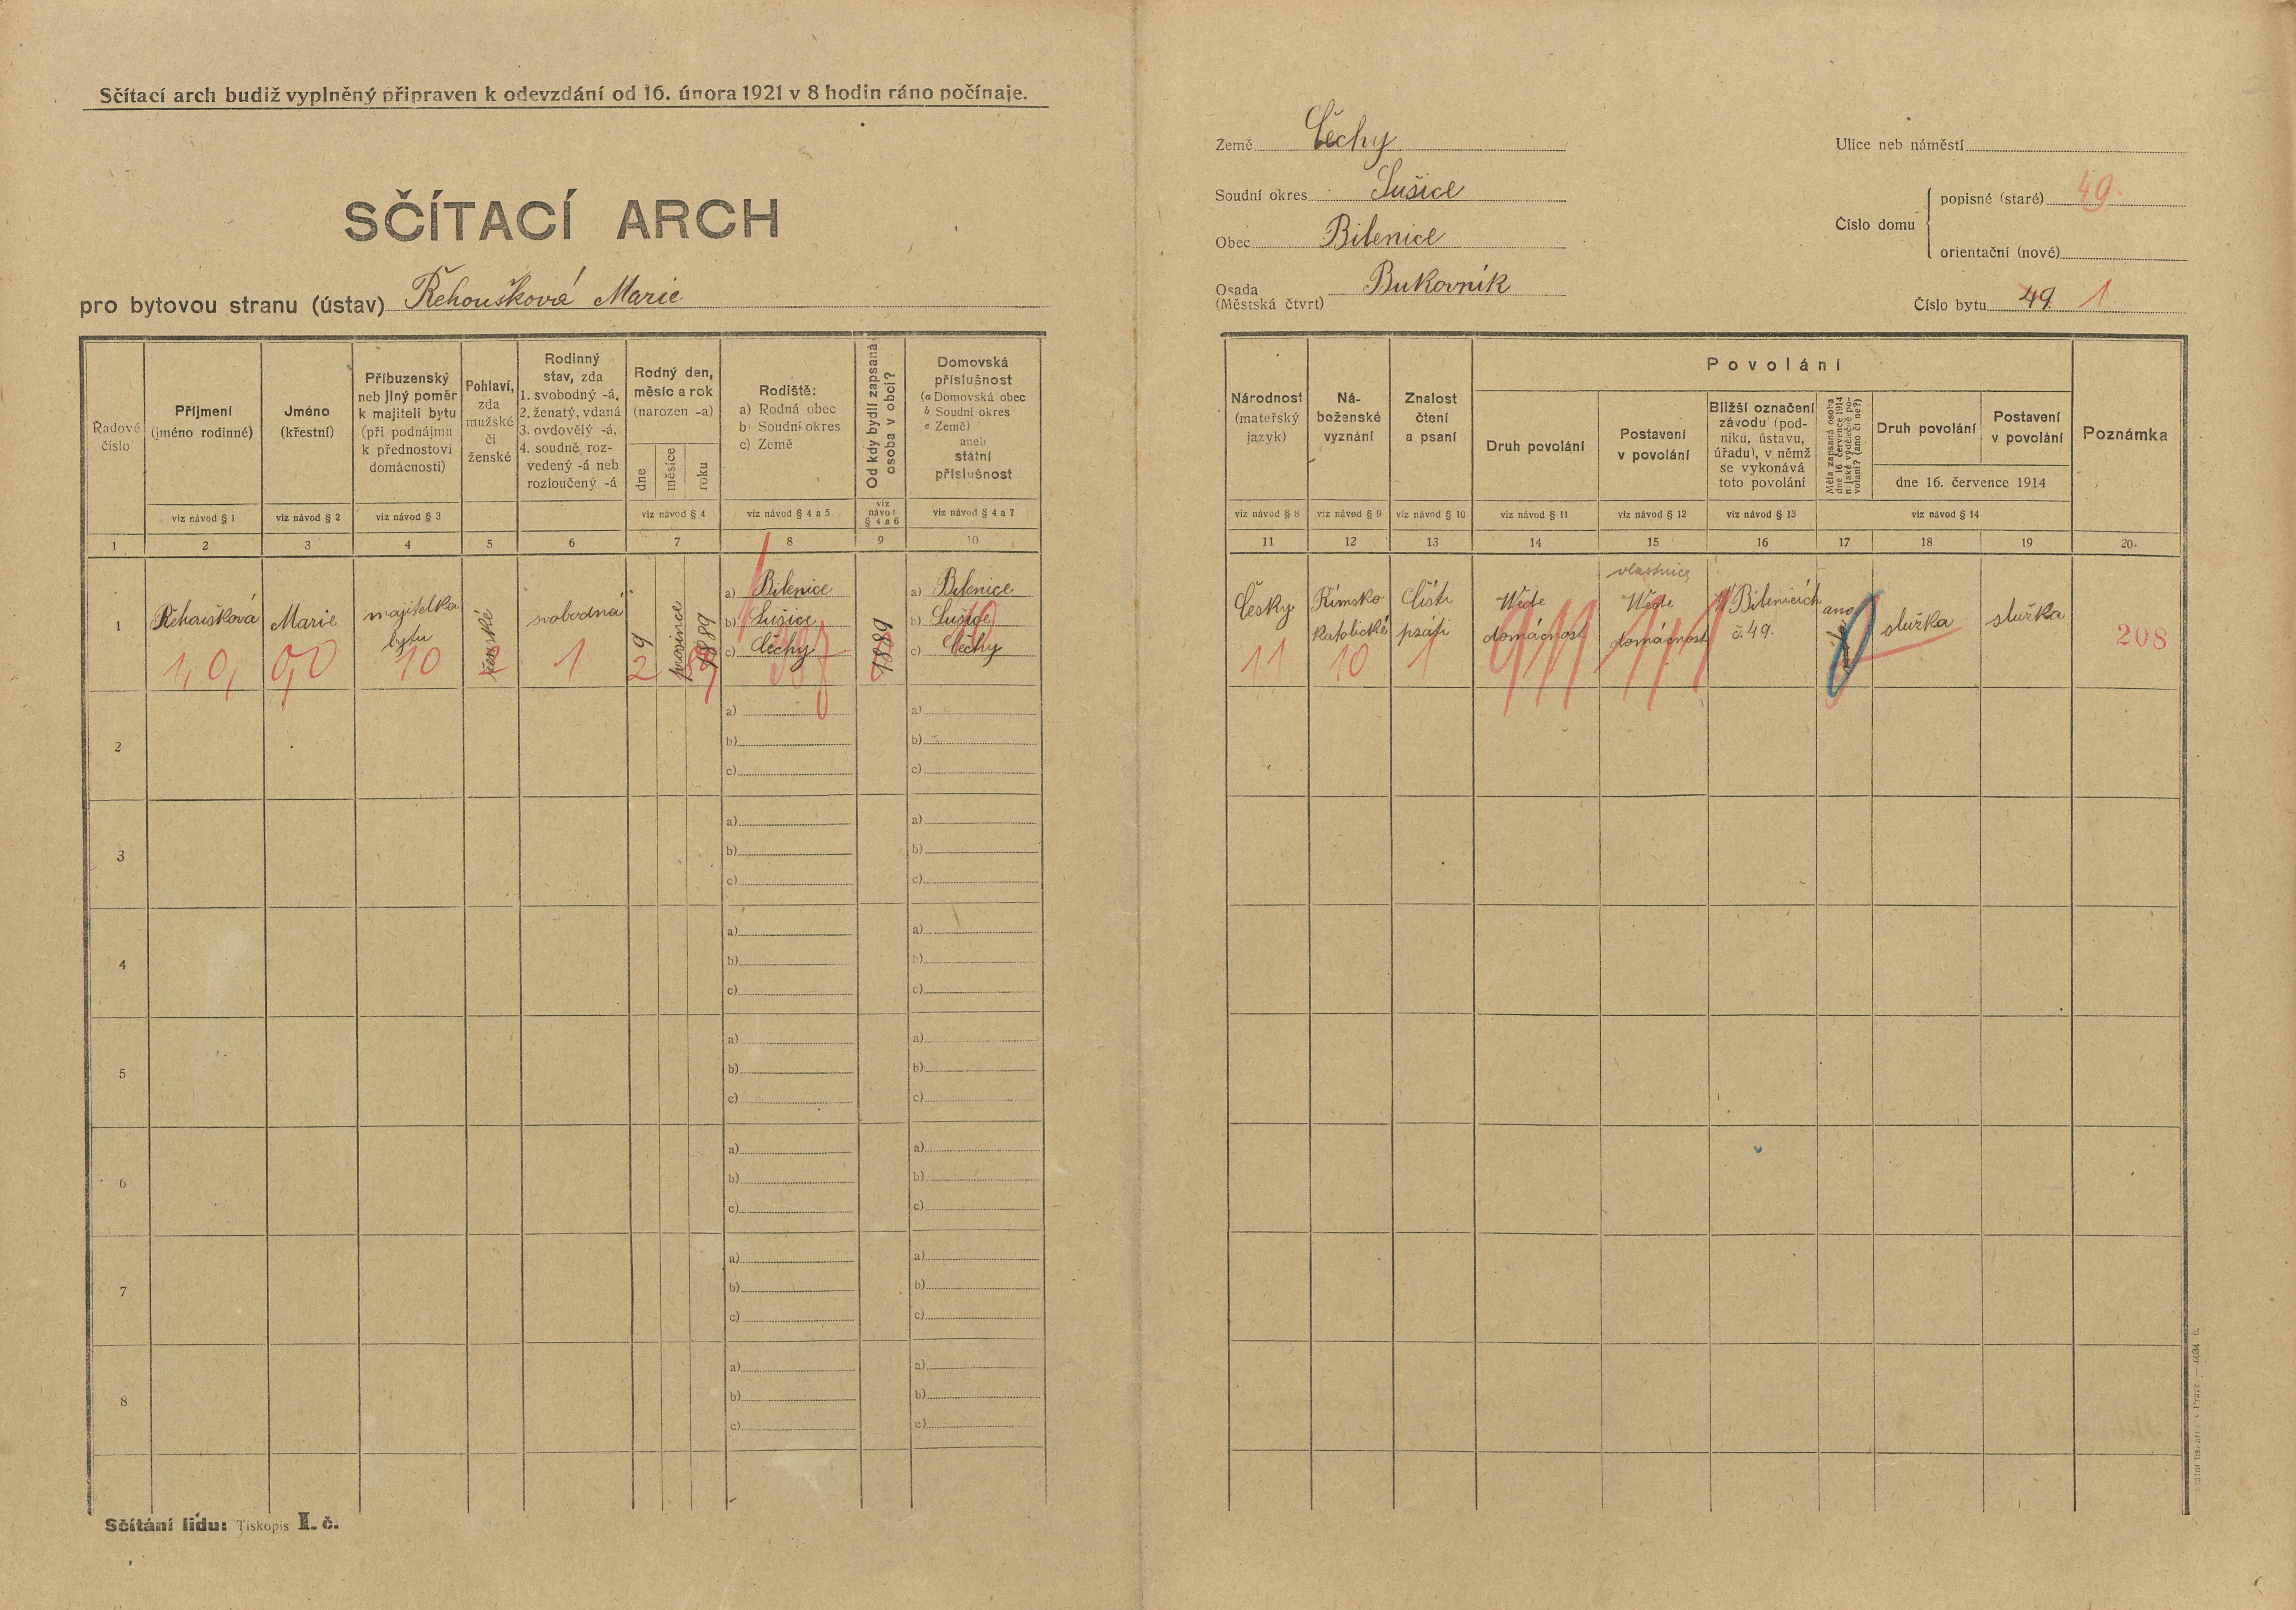 Sčítací arch budiž vyplněný připraven k odevzdání od 16. února 1921 v 8 hodin ráno počínaje.
SČÍTACÍ ARCH
pro bytovou stranu (ústav) Řehoušková Marie
Země Čechy
Soudní okres Sušice
Obec Bilenice
Osada
(Městská čtvrt) Bukovník
Ulice neb náměstí
Číslo domu
popisné (staré) 49.
orientační (nové)
Číslo bytu 49 1
Řadové
číslo
Příjmení
(jméno rodinné)
viz návod § 1
Jméno
(křestní)
viz návod § 2
Příbuzenský
neb jiný poměr
k majiteli bytu
(při podnájmu
k přednostovi
domácnosti)
viz návod § 3
Pohlaví,
zda
mužské
či
ženské
Rodinný
stav, zda
1. svobodný -á,
2. ženatý, vdaná
3. ovdovělý -á,
4. soudně roz-
vedený -á neb
rozloučený -á
Rodný den,
měsíc a rok
(narozen -a)
dne
měsíce
roku
viz návod § 4
Rodiště:
a) Rodná obec
b) Soudní okres
c) Země
viz návod § 4 a 5
Od kdy bydlí zapsaná
osoba v obci?
viz
návod
§ 4 a 6
Domovská
příslušnost
(a Domovská obec
b Soudní okres
c Země)
aneb
státní
příslušnost
viz návod § 4 a 7
Národnost
(mateřský
jazyk)
viz návod § 8
Ná-
boženské
vyznání
viz návod § 9
Znalost
čtení
a psaní
viz návod § 10
Povolání
Druh povolání
viz návod § 11
Postavení
v povolání
viz návod § 12
Bližší označení
závodu (pod-
niku, ústavu,
úřadu), v němž
se vykonává
toto povolání
viz návod § 13
Měla zapsaná osoba
dne 16. července 1914
nějaké výdělečné po-
volání? (ano či ne?)
Druh povolání
Postavení
v povolání
dne 16. července 1914
viz návod § 14
Poznámka
1 2 3 4 5 6 7 8 9 10 11 12 13 14 15 16 17 18 19 20.
1
Řehoušková
1,0,
Marie
0,0
majitelka
bytu
10
ženské
svobodná
1
9
2
prosince
1889
a) Bilenice
b) Sušice
c) Čechy
1889
a) Bilenice
b) Sušice
c) Čechy
Česky
11
Římsko
katolické
10
Čísti
psáti
1
Wede
domácnost
vlastnice
Wede
domácnost
W Bilenicích
č. 49.
ano
služka
služka
208
2
a)
b)
c)
a)
b)
c)
3
a)
b)
c)
a)
b)
c)
4
a)
b)
c)
a)
b)
c)
5
a)
b)
c)
a)
b)
c)
6
a)
b)
c)
a)
b)
c)
7
a)
b)
c)
a)
b)
c)
8
a)
b)
c)
a)
b)
c)
Sčítání lidu: Tiskopis I. č.